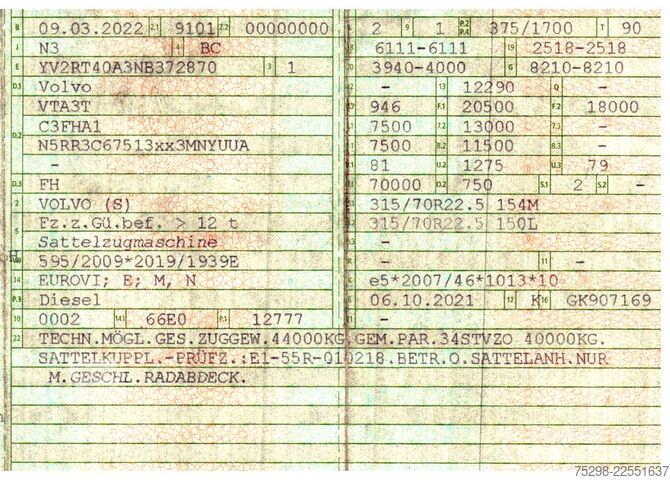 B 09.03.2022 2.1 9101 2.2 00000000
J N3 4 BC
E YV2RT40A3NB372870 3 1
D.1 Volvo
VTA3T
D.2 C3FHA1
N5RR3C67513xx3MNYUUA
-
D.3 FH
2 VOLVO (S)
5 Fz.z.Gü.bef. > 12 t
Sattelzugmaschine
595/2009*2019/1939E
14 EUROVI; E; M, N
P.3 Diesel
10 0002 14.1 66E0 P.1 12777
L 2 9 1 P.2 P.4 375/1700 T 90
18 6111-6111 19 2518-2518
20 3940-4000 G 8210-8210
12 - 13 12290 Q -
V.7 946 F.1 20500 F.2 18000
7.1 7500 7.2 13000 7.3 -
8.1 7500 8.2 11500 8.3 -
U.1 81 U.2 1275 U.3 79
O.1 70000 O.2 750 S.1 2 S.2 -
15.1 315/70R22.5 154M
15.2 315/70R22.5 150L
15.3 -
R - 11 -
K e5*2007/46*1013*10
6 06.10.2021 17 K 16 GK907169
22 TECHN.MÖGL.GES.ZUGGEW.44000KG.GEM.PAR.34STVZO 40000KG.
SATTELKUPPL.-PRÜFZ.:E1-55R-010218.BETR.O.SATTELANH.NUR
M.GESCHL.RADABDECK.
75298-22551637